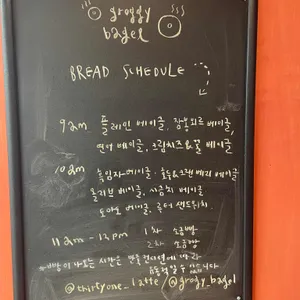 groggy
bagel
BREAD SCHEDULE
9am 플레인 베이글, 잠봉뵈르 베이글,
연어 베이글, 크림치즈&꿀 베이글
10am 흑임자 베이글, 호두&크랜베리 베이글
올리브 베이글, 시금치 베이글
토마토 베이글, 루어 샌드위치.
11am - 12pm 1차 소금빵
2차 소금빵
빵이 나오는 시간은 반죽컨디션에 따라
유동적일 수 있습니다
@thirtyone_latte/@groggy_bagel